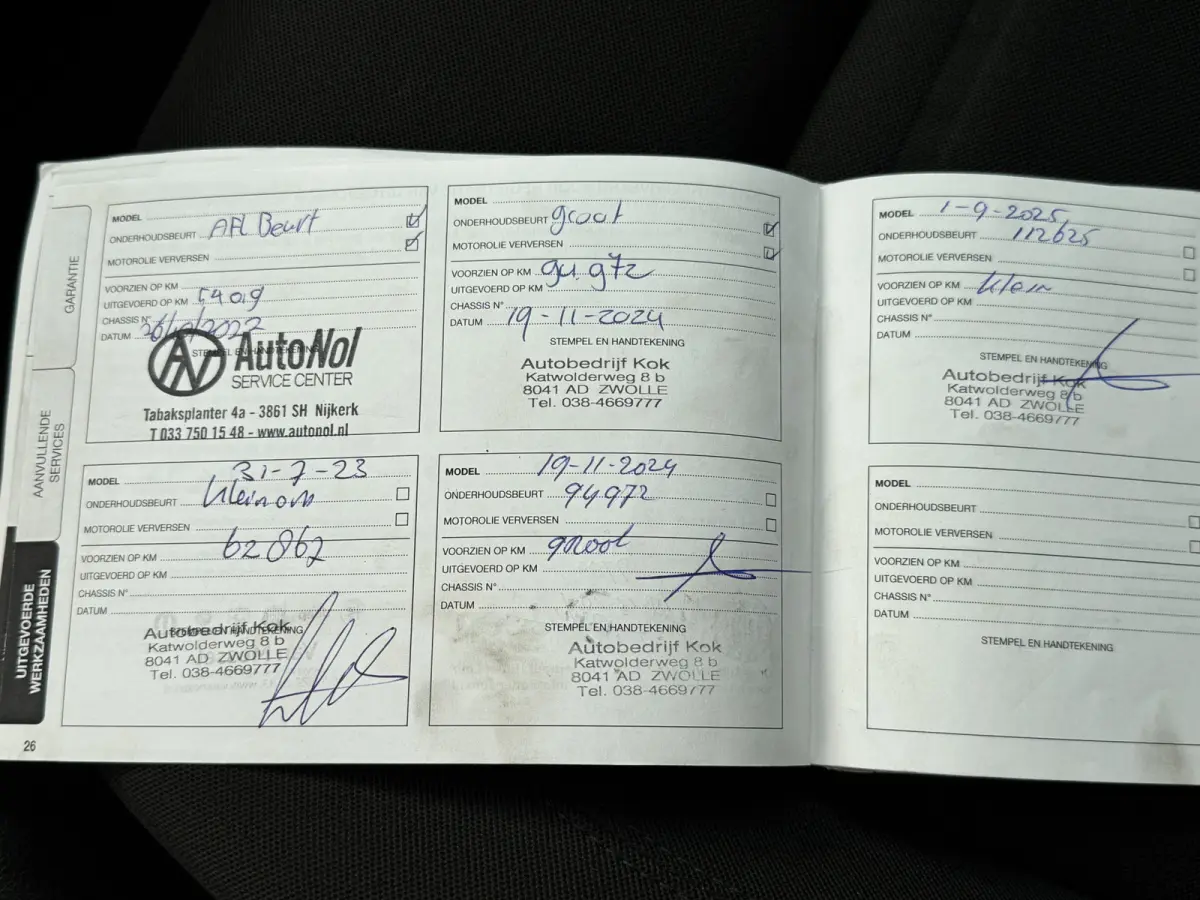 GARANTIE
AANVULLENDE
SERVICES
UITGEVOERDE
WERKZAAMHEDEN
26
MODEL
ONDERHOUDSBEURT AFL Beurt
MOTOROLIE VERVERSEN
VOORZIEN OP KM
UITGEVOERD OP KM
CHASSIS N°
DATUM
STEMPEL EN HANDTEKENING
AN AutoNol
SERVICE CENTER
Tabaksplanter 4a - 3861 SH Nijkerk
T 033 750 15 48 - www.autonol.nl
MODEL 31-7-23
ONDERHOUDSBEURT
MOTOROLIE VERVERSEN
VOORZIEN OP KM 62862
UITGEVOERD OP KM
CHASSIS N°
DATUM
STEMPEL EN HANDTEKENING
Autobedrijf Kok
Katwolderweg 8 b
8041 AD ZWOLLE
Tel. 038-4669777
MODEL
ONDERHOUDSBEURT groot
MOTOROLIE VERVERSEN
VOORZIEN OP KM 94.972
UITGEVOERD OP KM
CHASSIS N°
DATUM 19-11-2024
STEMPEL EN HANDTEKENING
Autobedrijf Kok
Katwolderweg 8 b
8041 AD ZWOLLE
Tel. 038-4669777
MODEL 19-11-2024
ONDERHOUDSBEURT 94972
MOTOROLIE VERVERSEN
VOORZIEN OP KM groot
UITGEVOERD OP KM
CHASSIS N°
DATUM
STEMPEL EN HANDTEKENING
Autobedrijf Kok
Katwolderweg 8 b
8041 AD ZWOLLE
Tel. 038-4669777
MODEL 1-9-2025,
ONDERHOUDSBEURT 112625
MOTOROLIE VERVERSEN
VOORZIEN OP KM klein
UITGEVOERD OP KM
CHASSIS N°
DATUM
STEMPEL EN HANDTEKENING
Autobedrijf Kok
Katwolderweg 8 b
8041 AD ZWOLLE
Tel. 038-4669777
MODEL
ONDERHOUDSBEURT
MOTOROLIE VERVERSEN
VOORZIEN OP KM
UITGEVOERD OP KM
CHASSIS N°
DATUM
STEMPEL EN HANDTEKENING